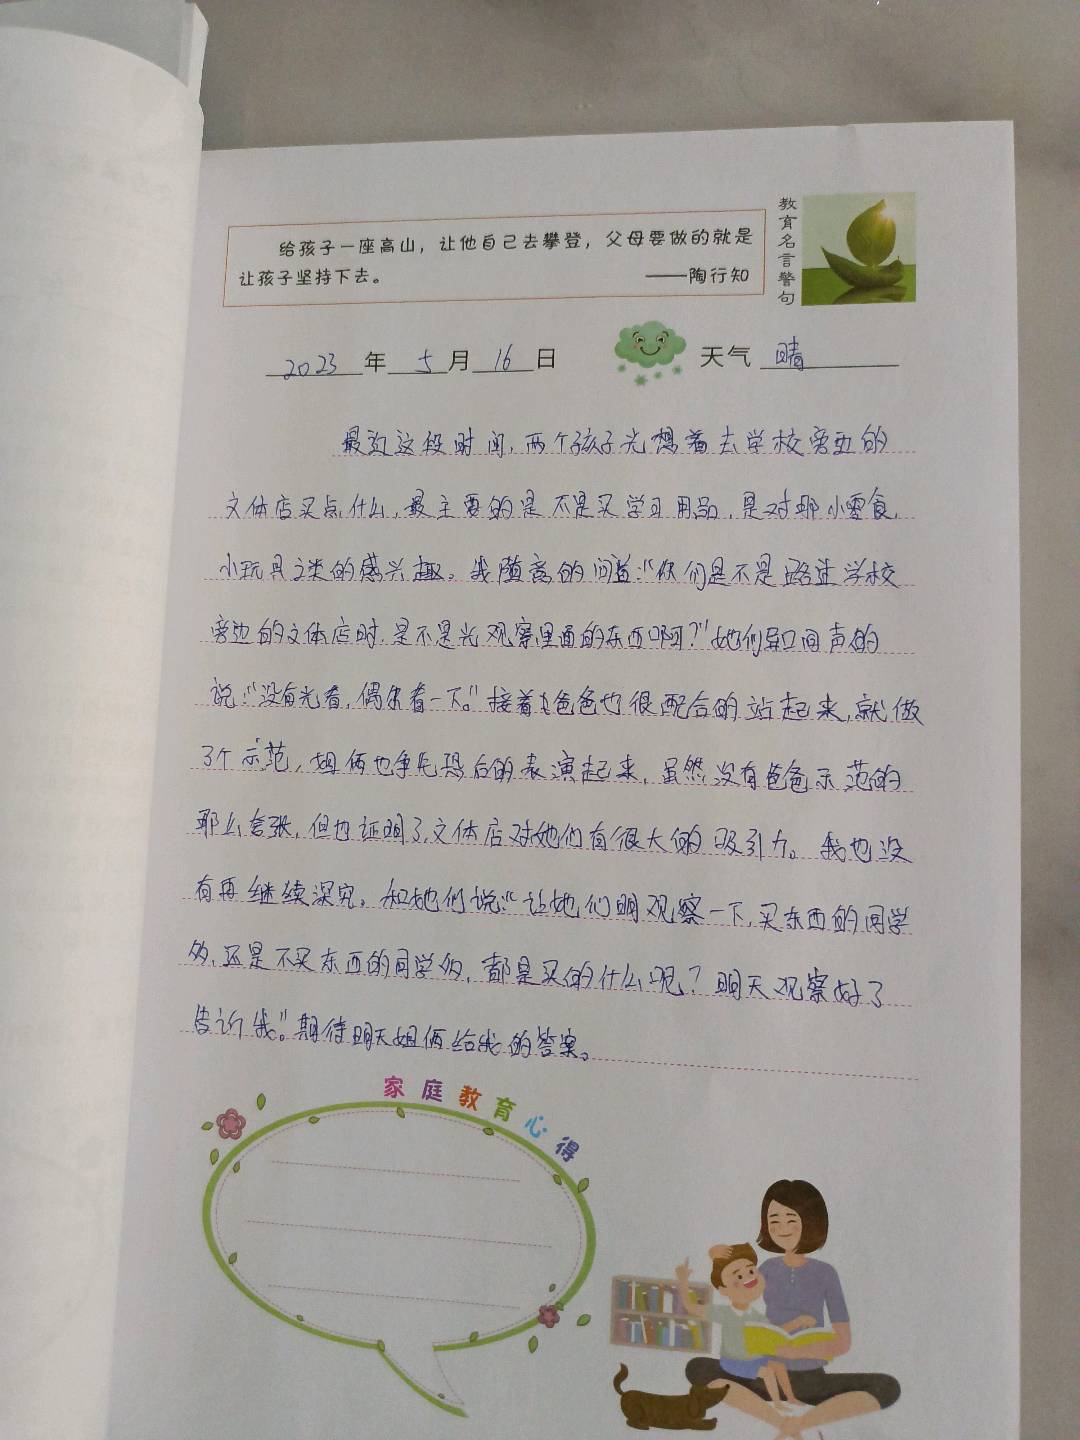 给孩子一座高山，让他自己去攀登，父母要做的就是
让孩子坚持下去。 ——陶行知
教育名言警句
2023年5月16日 天气 晴
最近这段时间，两个孩子光想着去学校旁边的
文体店买点什么，最主要的是不是买学习用品，是对那小零食，
小玩具之类的感兴趣。我随高的问道：“你们是不是路过学校
旁边的文体店时，是不是光观察里面的东西啊？”她们异口同声的
说：“没有光看，偶尔看一下。”接着爸爸也很配合的站起来，就做
了个示范，姐俩也争先恐后的表演起来，虽然没有爸爸示范的
那么夸张，但也证明了，文体店对她们有很大的吸引力。我也没
有再继续深究。和她们说：“让她们明观察一下，买东西的同学
多，还是不买东西的同学多，都是买的什么呢？明天观察好了
告诉我。”期待明天姐俩给我的答案。
家庭教育心得